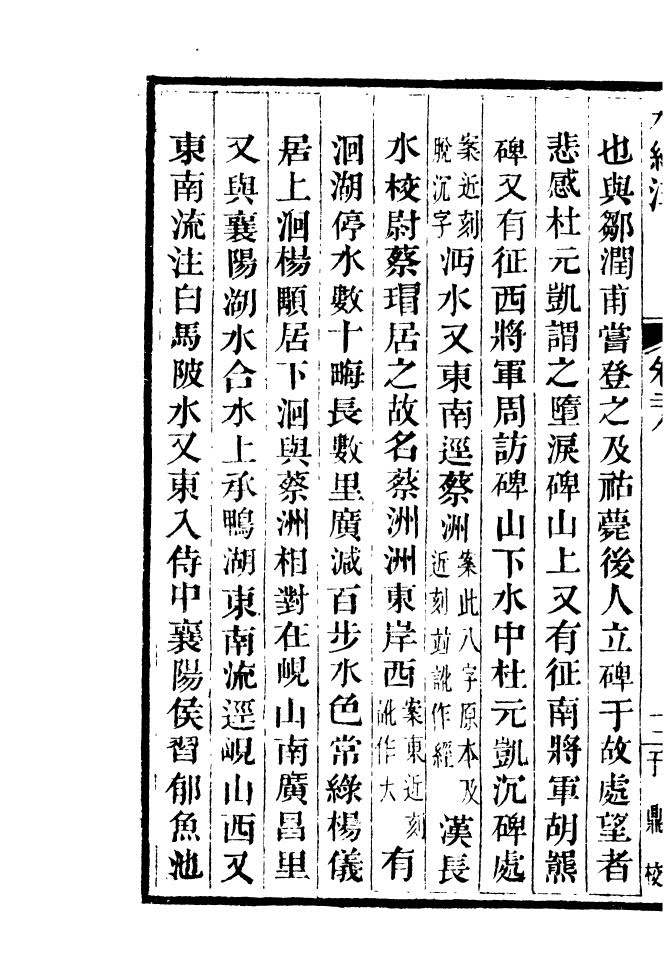 也與鄒潤甫嘗登之及祜薨後人立碑于故處望者
悲感杜元凱謂之墮淚碑山上又有征南將軍胡羆
碑又有征西將軍周訪碑山下水中杜元凱沉碑處
案近刻脫沉字沔水又東南逕蔡洲案此八字原本及近刻竝訛作經漢長
水校尉蔡瑁居之故名蔡洲洲東岸西案東近刻訛作大有
洄湖停水數十畮長數里廣減百步水色常綠楊儀
居上洄楊顒居下洄與蔡洲相對在峴山南廣昌里
又與襄陽湖水合水上承鴨湖東南流逕峴山西又
東南流注白馬陂水又東入侍中襄陽侯習郁魚池